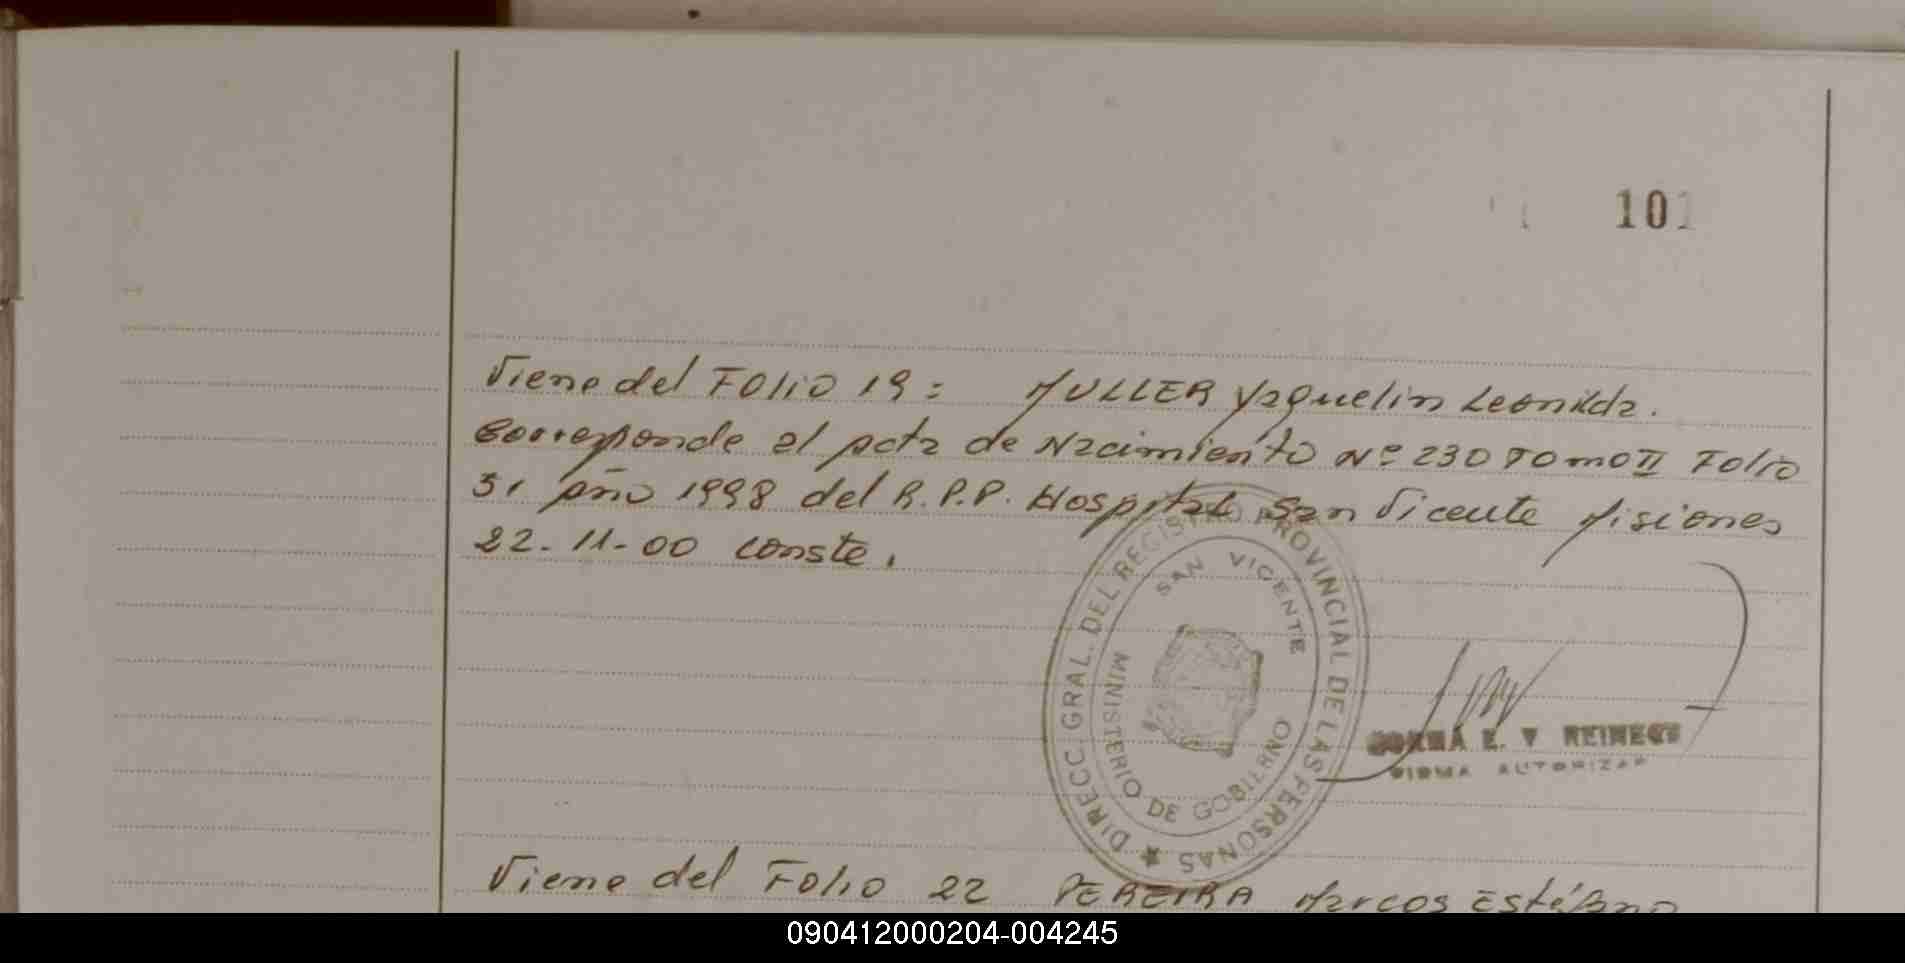 101
Viene del Folio 19: MULLER Yaquelin Leonilda.
Corresponde al acta de Nacimiento Nº 230 Tomo II Folio
31 año 1998 del R.P.P. Hospital San Vicente Misiones
22-11-00 conste.
DIRECC. GRAL. DEL REGISTRO PROVINCIAL DE LAS PERSONAS
SAN VICENTE
MINISTERIO DE GOBIERNO
NORMA E. V REINECK
FIRMA AUTORIZAD
Viene del Folio 22 PEREIRA Marcos Estéban
090412000204-004245